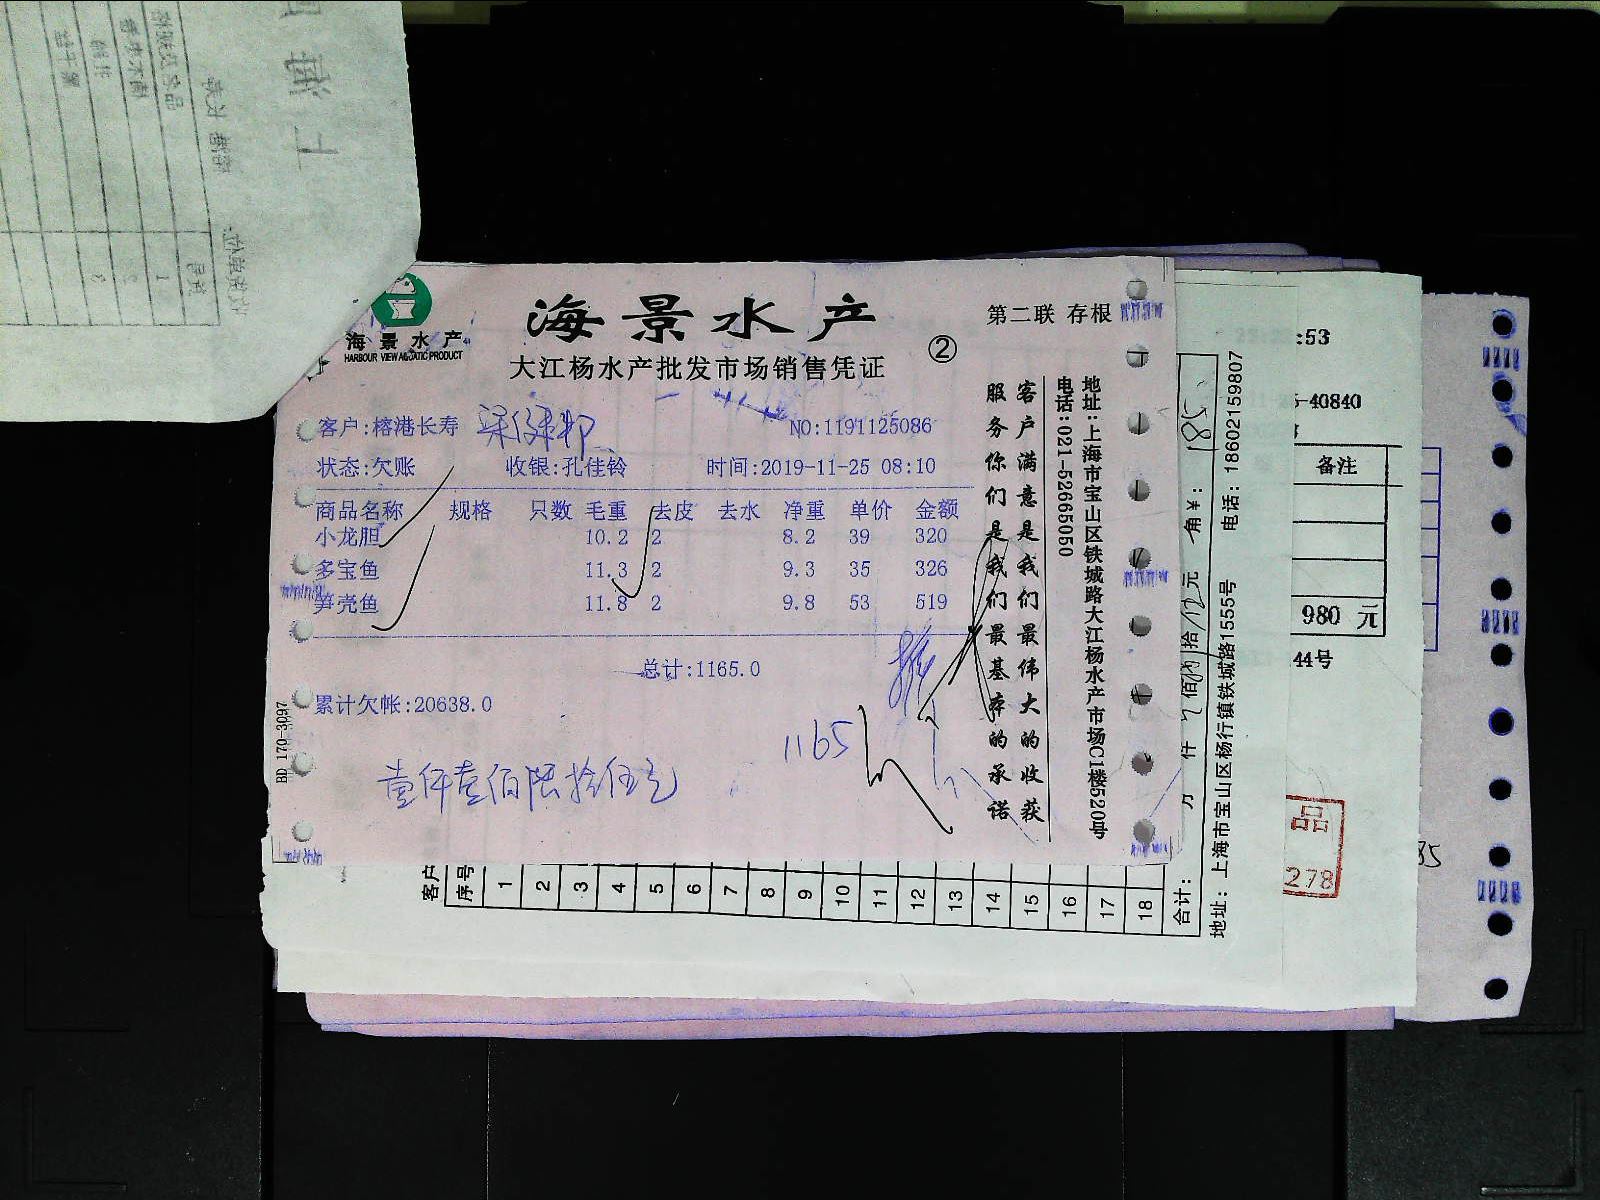 海景水产
HARBOUR VIEW AQUATIC PRODUCT
海景水产
第二联 存根
大江杨水产批发市场销售凭证
②
客户:榕港长寿
NO:1191125086
状态:欠账 收银:孔佳铃 时间:2019-11-25 08:10
商品名称 规格 只数 毛重 去皮 去水 净重 单价 金额
小龙胆 10.2 2 8.2 39 320
多宝鱼 11.3 2 9.3 35 326
笋壳鱼 11.8 2 9.8 53 519
总计:1165.0
累计欠帐:20638.0
1165
壹仟壹佰陆拾伍元
BD 170-3097
客户满意是我们最伟大的收获
服务你们是我们最基本的承诺
地址:上海市宝山区铁城路大江杨水产市场C1楼520号
电话:021-52665050
客户
序号
1
2
3
4
5
6
7
8
9
10
11
12
13
14
15
16
17
18
合计: 万 仟 佰 拾 元 角 ¥: 185
地址:上海市宝山区杨行镇铁城路1555号 电话:18602159807
:53
-40840
备注
980 元
44号
品
278